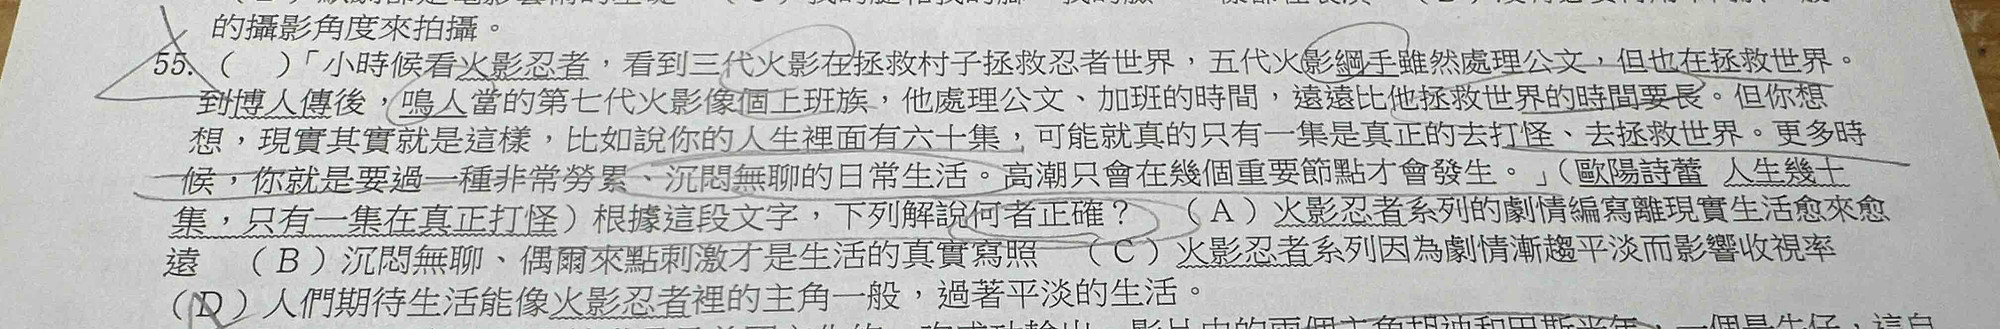 的攝影角度來拍攝。
55.（　）「小時候看火影忍者，看到三代火影在拯救村子拯救忍者世界，五代火影綱手雖然處理公文，但也在拯救世界。
到博人傳後，鳴人當的第七代火影像個上班族，他處理公文、加班的時間，遠遠比他拯救世界的時間要長。但你想
想，現實其實就是這樣，比如說你的人生裡面有六十集，可能就真的只有一集是真正的去打怪、去拯救世界。更多時
候，你就是要過一種非常勞累、沉悶無聊的日常生活。高潮只會在幾個重要節點才會發生。」（歐陽詩蕾 人生幾十
集，只有一集在真正打怪）根據這段文字，下列解說何者正確？　（A）火影忍者系列的劇情編寫離現實生活愈來愈
遠　（B）沉悶無聊、偶爾來點刺激才是生活的真實寫照　（C）火影忍者系列因為劇情漸趨平淡而影響收視率
（D）人們期待生活能像火影忍者裡的主角一般，過著平淡的生活。